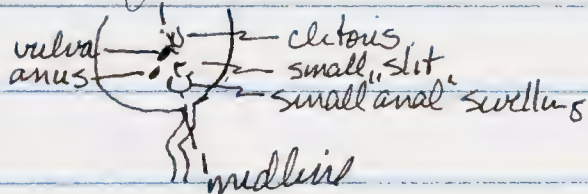 vulva
clitoris
anus
small „slit
small anal" swelling
midline